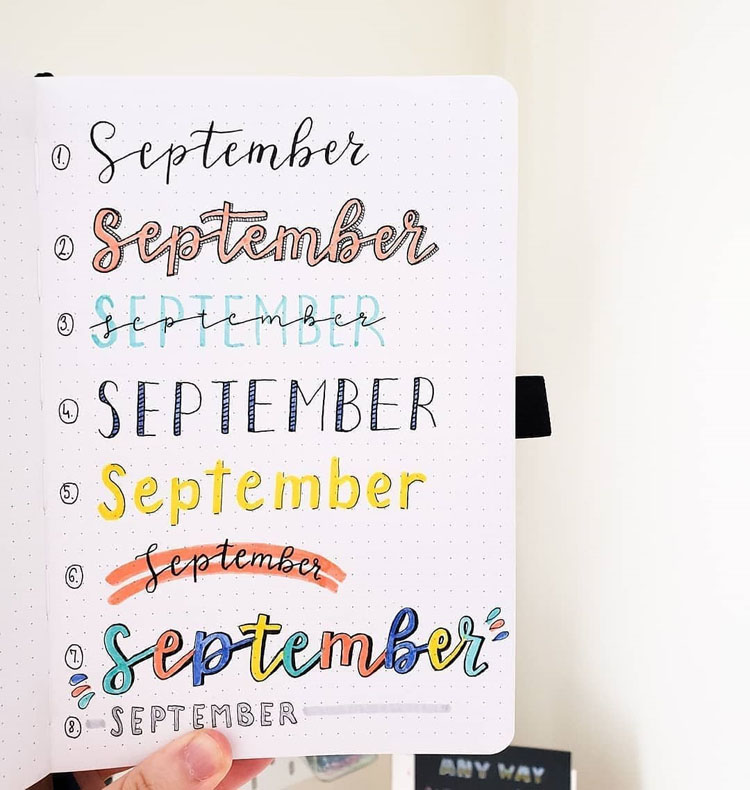 1. September
2. September
3. SEPTEMBER september
4. SEPTEMBER
5. September
6. September
7. September
8. SEPTEMBER
ANY WAY